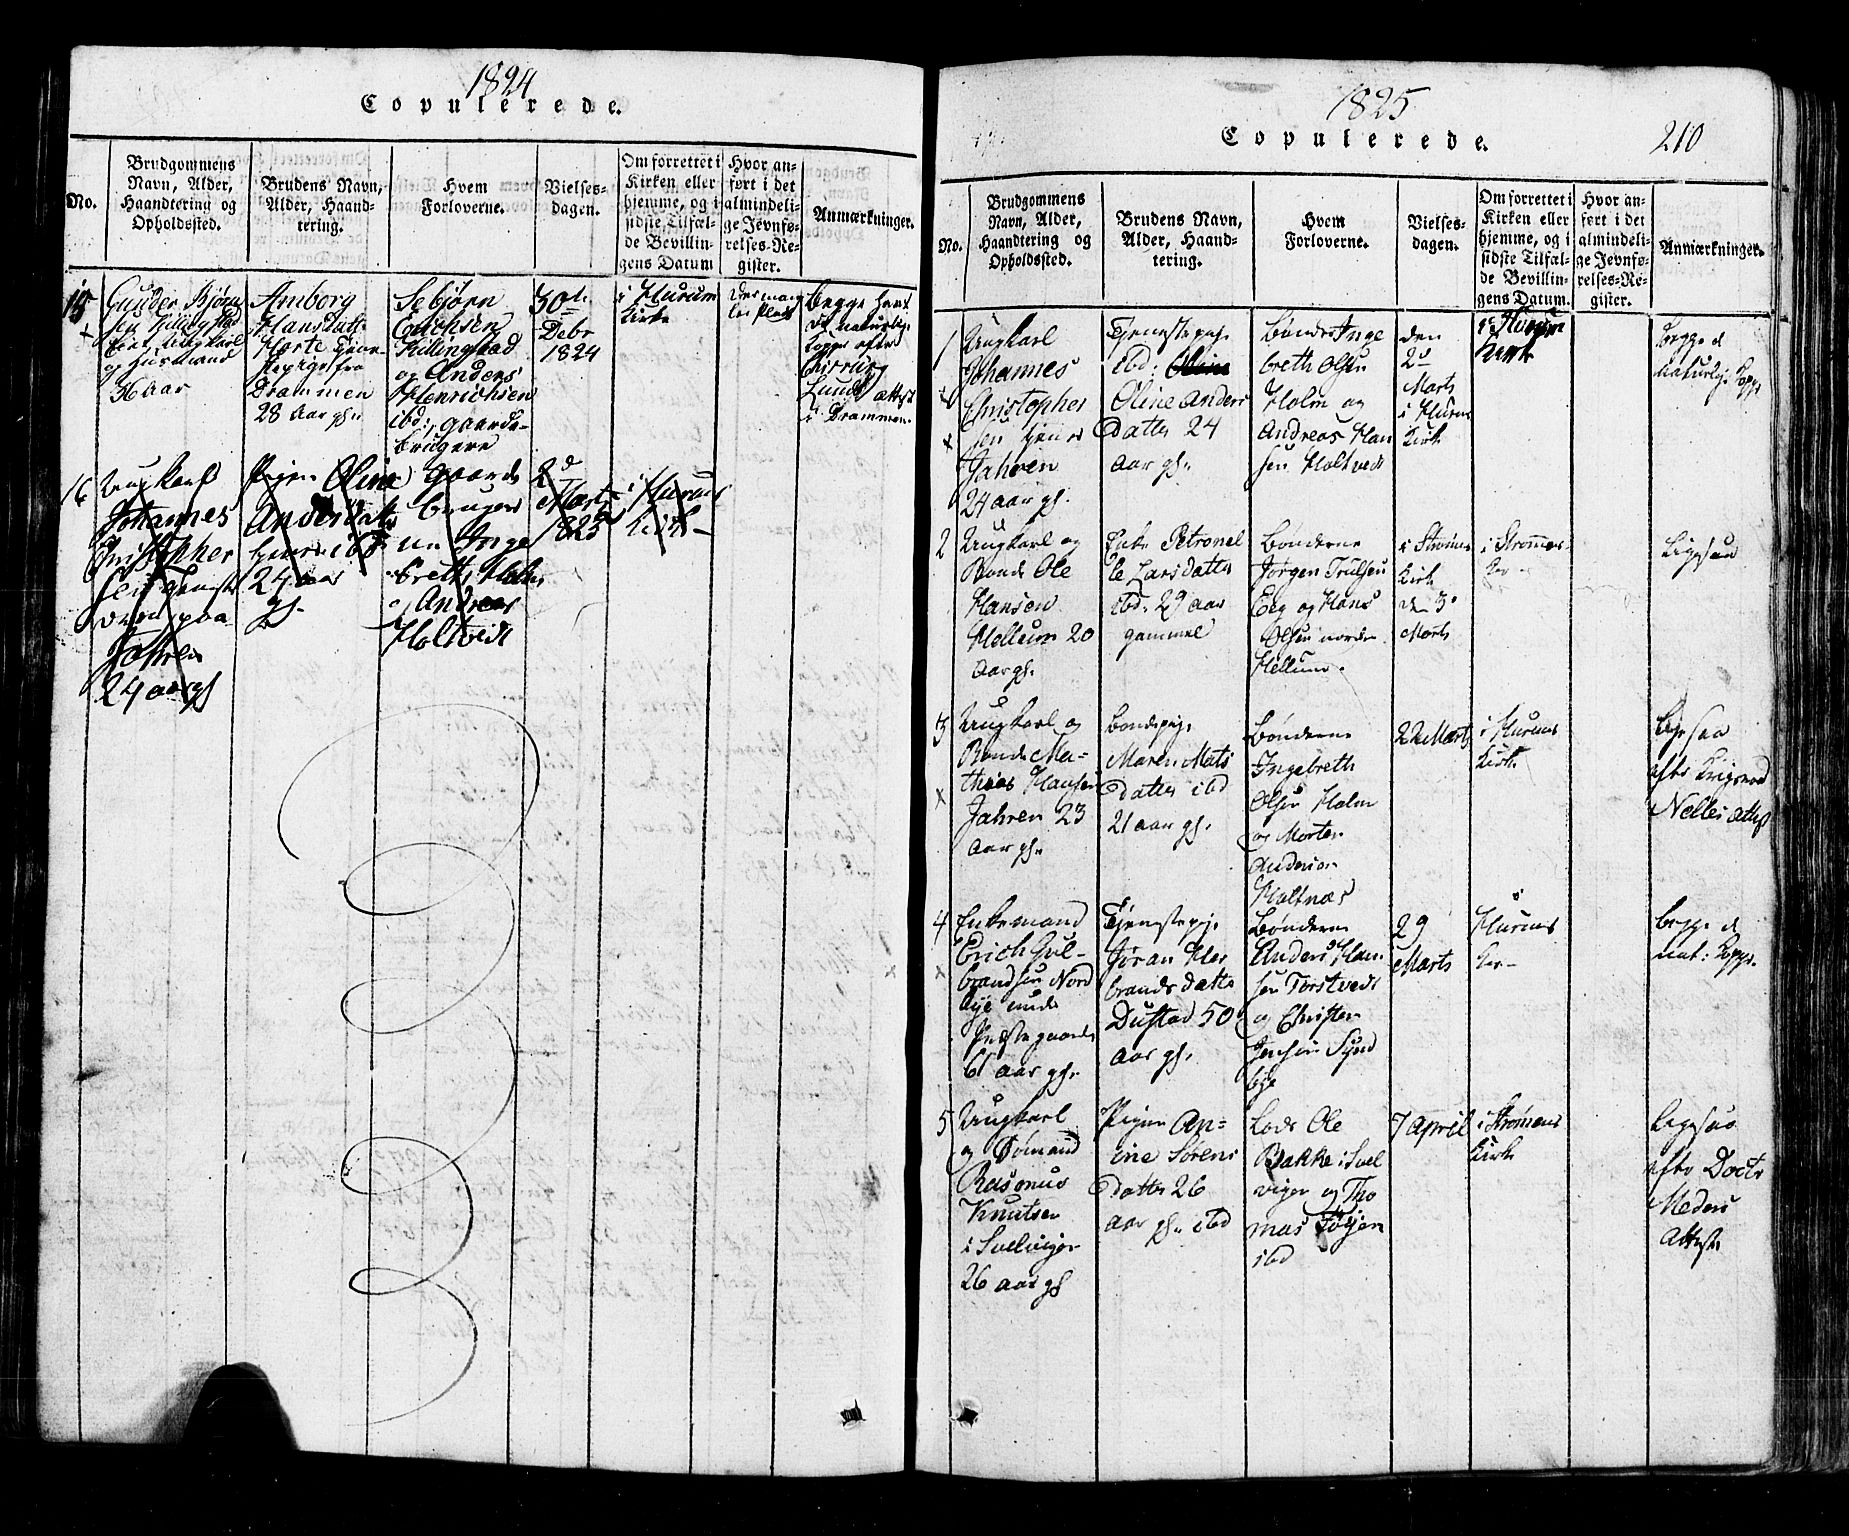 1824
Copulerede.
No.
Brudgommens
Navn, Alder,
Haandtering og
Opholdssted.
Brudens Navn,
Alder, Haand-
tering.
Hvem
Forloverne.
Vielses-
dagen.
Om forrettet i
Kirken eller
hjemme, og i
sidste Tilfæl-
de Bevillin-
gens Datum
Hvor an-
ført i det
almindeli-
ge Jevnfø-
relses-Re-
gister.
Anmærkninger.
15
Gunder Bjørn
sen Killingstad
Ungkarl
og Huusmand
36 Aar
Amborg
Hansdatt
Horte
fra
Drammen
28 Aar gl.
Sebjørn
Erichsen
Killingstad
og Anders
Henrichsen
ibd: gaard-
brugere
30
Debr
1824
i Hurum
Kirke
Begge havt
de naturlige
Kopper efter
Chirurg
Lunds Attest
Drammen
16
Ungkarl
Johannes
Christopher
sen tjenst
paa
Jahren
24 aar gl
Pigen Olina
Andersdatt
tjener ibd
24 aar
gl.
gaard
bruger
ne Inge
breth Holm
og Andreas
Holtvedt
2d
Marts
1825
i Hurum
Kirk
1825
Copulerede.
210
No.
Brudgommens
Navn, Alder,
Haandtering og
Opholdssted.
Brudens Navn,
Alder, Haand-
tering.
Hvem
Forloverne.
Vielses-
dagen.
Om forrettet i
Kirken eller
hjemme, og i
sidste Tilfæl-
de Bevillin-
gens Datum.
Hvor an-
ført i det
almindeli-
ge Jevnfø-
relses-Re-
gister.
Anmærkninger.
1
Ungkarl
Johannes
Christopher
sen tjener
Jahren
24 aar gl.
Tjenestepige
ibd: Oline
Oline Anders
Datter 24
Aar gl.
Bønder Inge
breth Olsen
Holm og
Andreas Han
sen Holtvedt
den
2d
Marts
i Hurum
Kirk
i Hurum
Kirk
begge d
naturlige Kopp.
2
Ungkarl og
Bonde Ole
Hansen
Hellum 20
Aar gl.
Enke Petronel
le Larsdatter
ibd. 29 aar
gammel
Bønderne
Jørgen Trulsen
Eeg og Hans
Olsen nordre
Hellum.
i Strøms
Kirk
d. 3
Marts
i Strømms
Ligesaa
3
Ungkarl og
Bonde Ma-
thias Hansen
Jahren 23
Aar gl.
Bondepige
Maren Mats
Datter ibd
21 aar gl.
Bønderne
Ingebreth
Olsen Holm
og Morten
Andersen
Holtnæs
22 Marts
i Hurum
Kirk
Ligesaa
efter
Nelles Attest
4
Enkemand
Erich Gul-
brandsen Nord
bye unde
Præstegaarden
61 aar gl.
Tjenestepige
Jøran Her
brands datter
Dustad 50
aar gl.
Bønderne
Anders Han
sen Torstvedt
og Christen
Jensen Synd
bye
29
Marts
i
Hurum
Kir-
begge d
nat: Kopp.
5
Ungkarl
og Sømand
Rasmus
Knutsen
i Svelvigen
26 aar gl
Pigen An-
ine Sørens
Datter 26
Aar gl. ibd
Lods Ole
Bakke i Svel
vigen og Tho
mas
ibd
7 April
i Strømms
Kirk
Ligesaa
efter Doctr
Attest